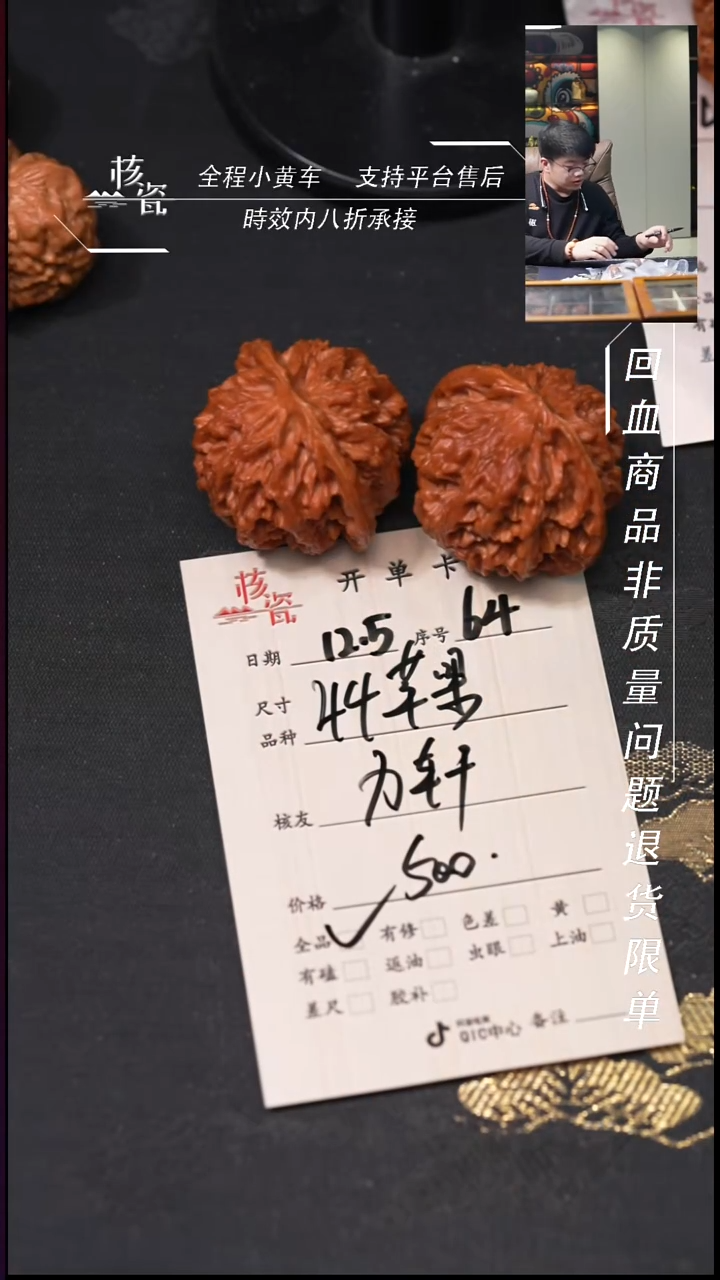 核瓷
全程小黄车 支持平台售后
時效内八折承接
回血商品非质量问题退货限单
核瓷
开单卡
日期 12.5 序号 64
尺寸
品种 44苹果
核友 力轩
价格 500.
全品 有修 色差 黄
有磕 返油 虫眼 上油
差尺 胶补
QIC中心 备注